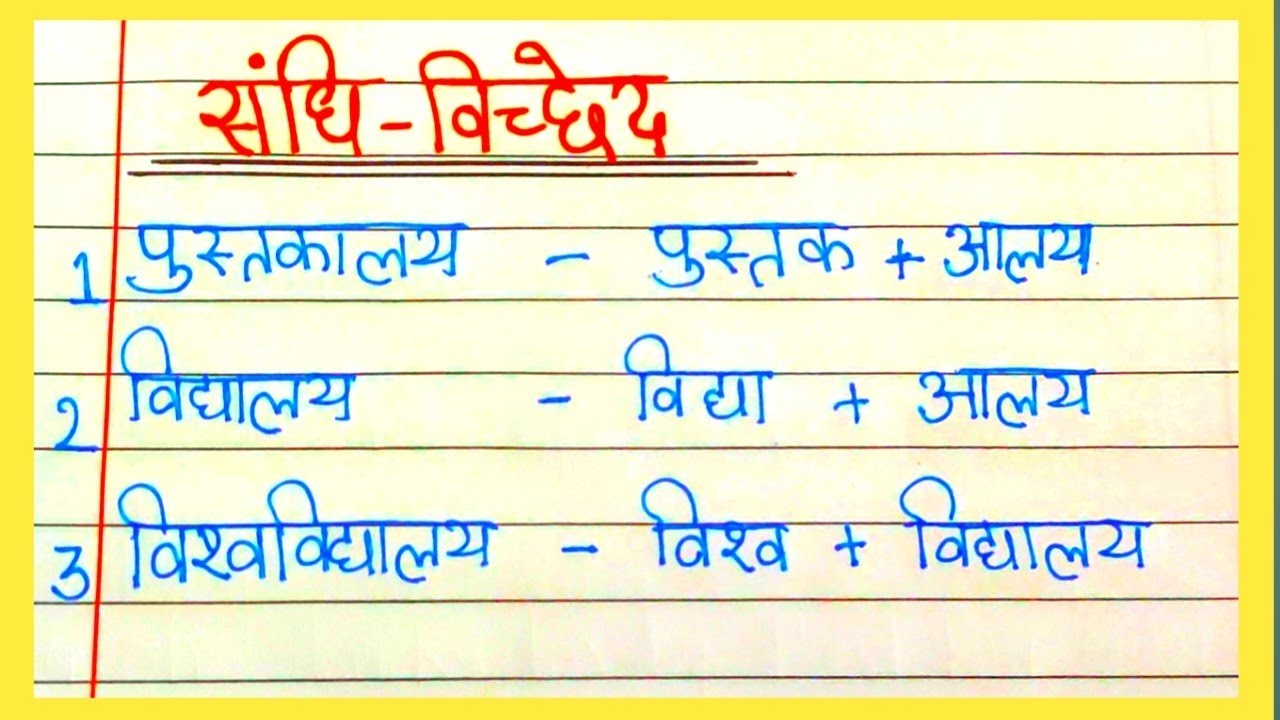 संधि-विच्छेद
1 पुस्तकालय - पुस्तक + आलय
2 विद्यालय - विद्या + आलय
3 विश्वविद्यालय - विश्व + विद्यालय